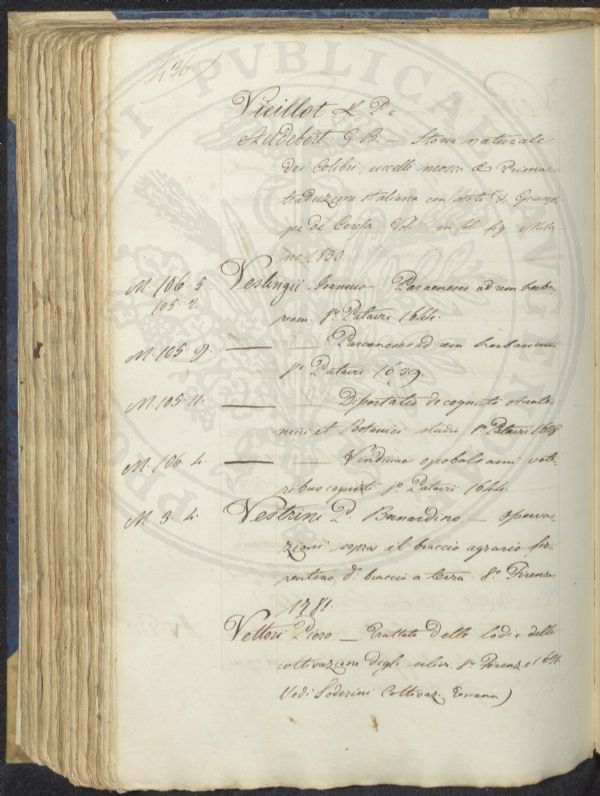 436
Vieillot & De
Audebert G B. — Storia naturale
dei Colibri, uccelli mosca & Prima
traduzione italiana con note di
in fol. fig. Mila
no 1830
M. 106 5. Veslingii Joannis Paraeneses ad rem herba
105 2. riam. 8º Patavii 1644.
M. 105 9. — — Paraeneses ad rem herbariam
8º Patavii 1639.
M. 105 11. — — de cognato Anato
mici et Botanici studio 8º Patavii 1638
M. 106. 4. — — Vindiciae opobalsami vete
ribus cogniti 8º Patavii 1644.
M. 3. 4. Vestrini D. Bernardino — Operva
zioni sopra il braccio agrario fio
rentino, dº braccio a terra. 8º Firenze
1781.
Vettori Piero — Trattato delle lodi e della
coltivazione degli ulivi. 8º Firenze
Vedi Soderini Coltivaz. Toscana)